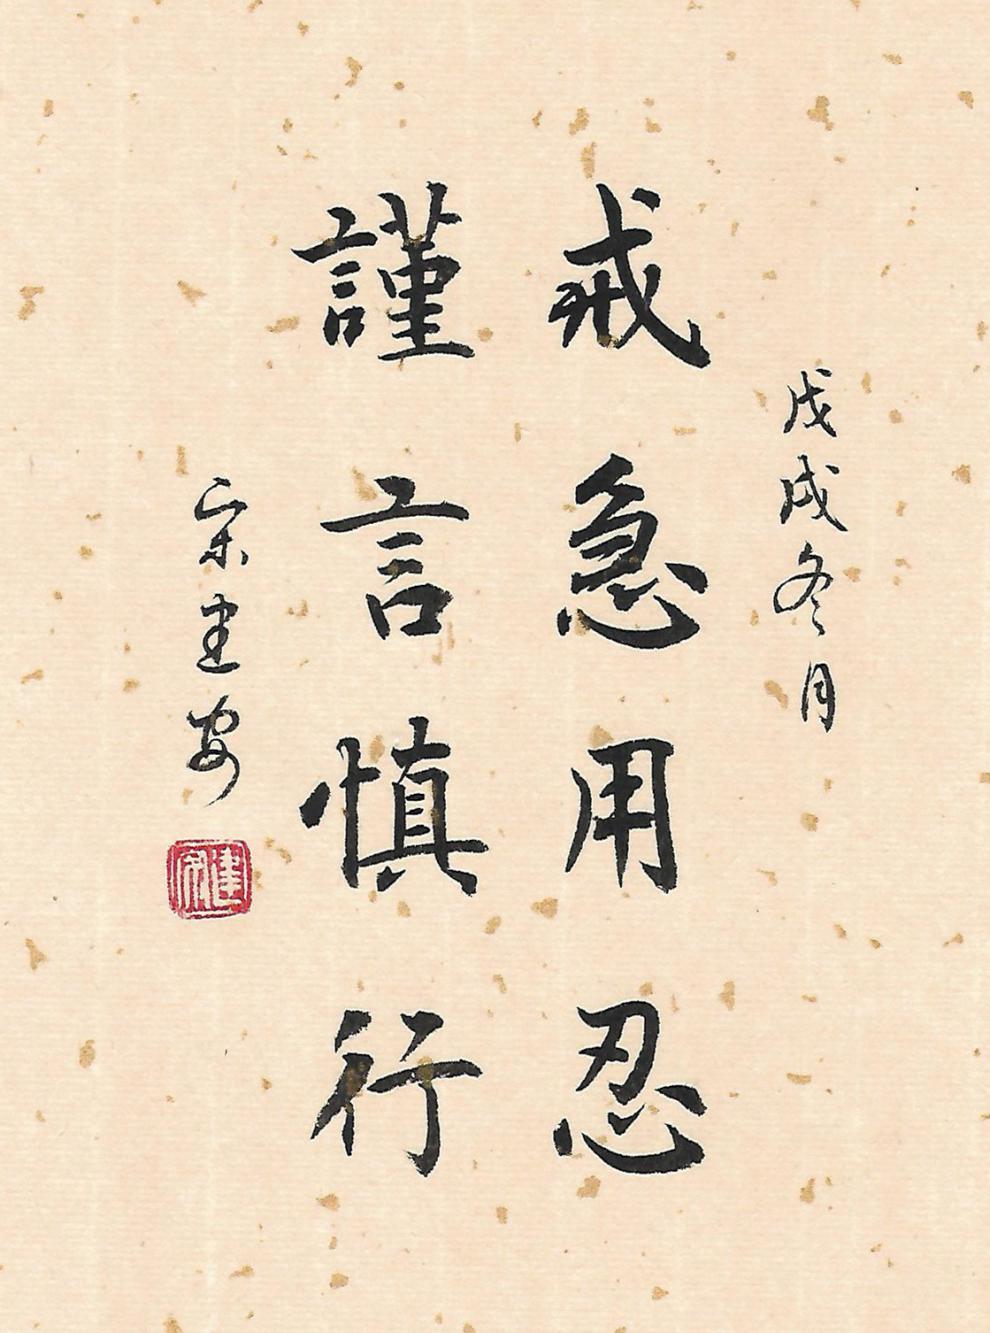 戊戌冬月
戒急用忍
謹言慎行
宋建安
建安